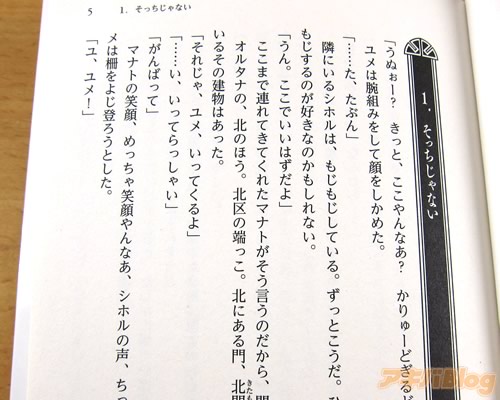 5　1．そっちじゃない
1．そっちじゃない
「うぬぉー？　きっと、ここやんなあ？　かりゅーどぎるど
ユメは腕組みをして顔をしかめた。
「……た、たぶん」
隣にいるシホルは、もじもじしている。ずっとこうだ。ひ
もじするのが好きなのかもしれない。
「うん。ここでいいはずだよ」
ここまで連れてきてくれたマナトがそう言うのだから、間
オルタナの、北のほう。北区の端っこ。北にある門、北門
きたもん
いるその建物はあった。
「それじゃ、ユメ、いってくるよ」
「……い、いってらっしゃい」
「がんばって」
マナトの笑顔、めっちゃ笑顔やんなあ、シホルの声、ちっ
メは柵をよじ登ろうとした。
「ユ、ユメ！」
アキバBlog